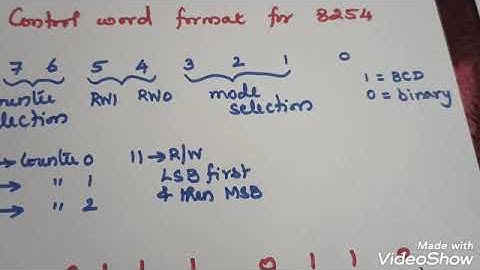 Control word format for 8254
7 6 5 4 3 2 1 0
RW1 RW0 mode selection
1 = BCD
0 = binary
→ Counter 0
→ " 1
→ " 2
11 → R/W
LSB first
& then MSB
Made with
VideoShow